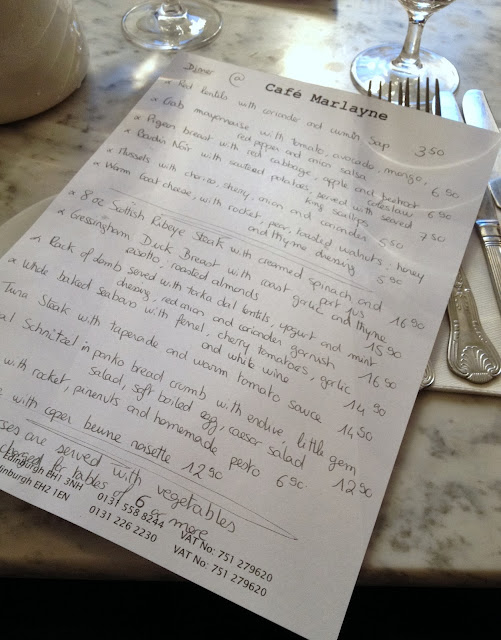 Dinner @ Café Marlayne
* Red lentils with coriander and cumin soup 3.50
* Crab mayonnaise with tomato, avocado, mango,
red pepper and onion salsa 6.90
* Pigeon breast with red cabbage, apple and beetroot
coleslaw 6.90
* Boudin Noir with sauteed potatoes, served with seared
king scallops 7.50
* Mussels with chorizo, sherry, onion and coriander 5.50
* Warm Goat cheese, with rocket, pear, toasted walnuts, honey
and thyme dressing 5.90
* 8 oz Scottish Ribeye Steak with creamed spinach and
port jus 16.90
* Gressingham Duck Breast with roast garlic and thyme
risotto, roasted almonds 15.90
* Rack of lamb served with tarka dal lentils, yogurt and mint
dressing, red onion and coriander garnish 16.50
* Whole baked seabass with fennel, cherry tomatoes, garlic
and white wine 14.90
Tuna Steak with tapenade and warm tomato sauce 14.50
al Schnitzel in panko bread crumb with endive, little gem
salad, soft boiled egg, caesar salad 12.90
with rocket, pinenuts and homemade pesto 6.90
with caper beurre noisette 12.90
ses are served with vegetables
charged for tables of 6 or more
Edinburgh EH1 3NH 0131 558 8244 VAT No: 751 279620
dinburgh EH2 1EN 0131 226 2230 VAT No: 751 279620